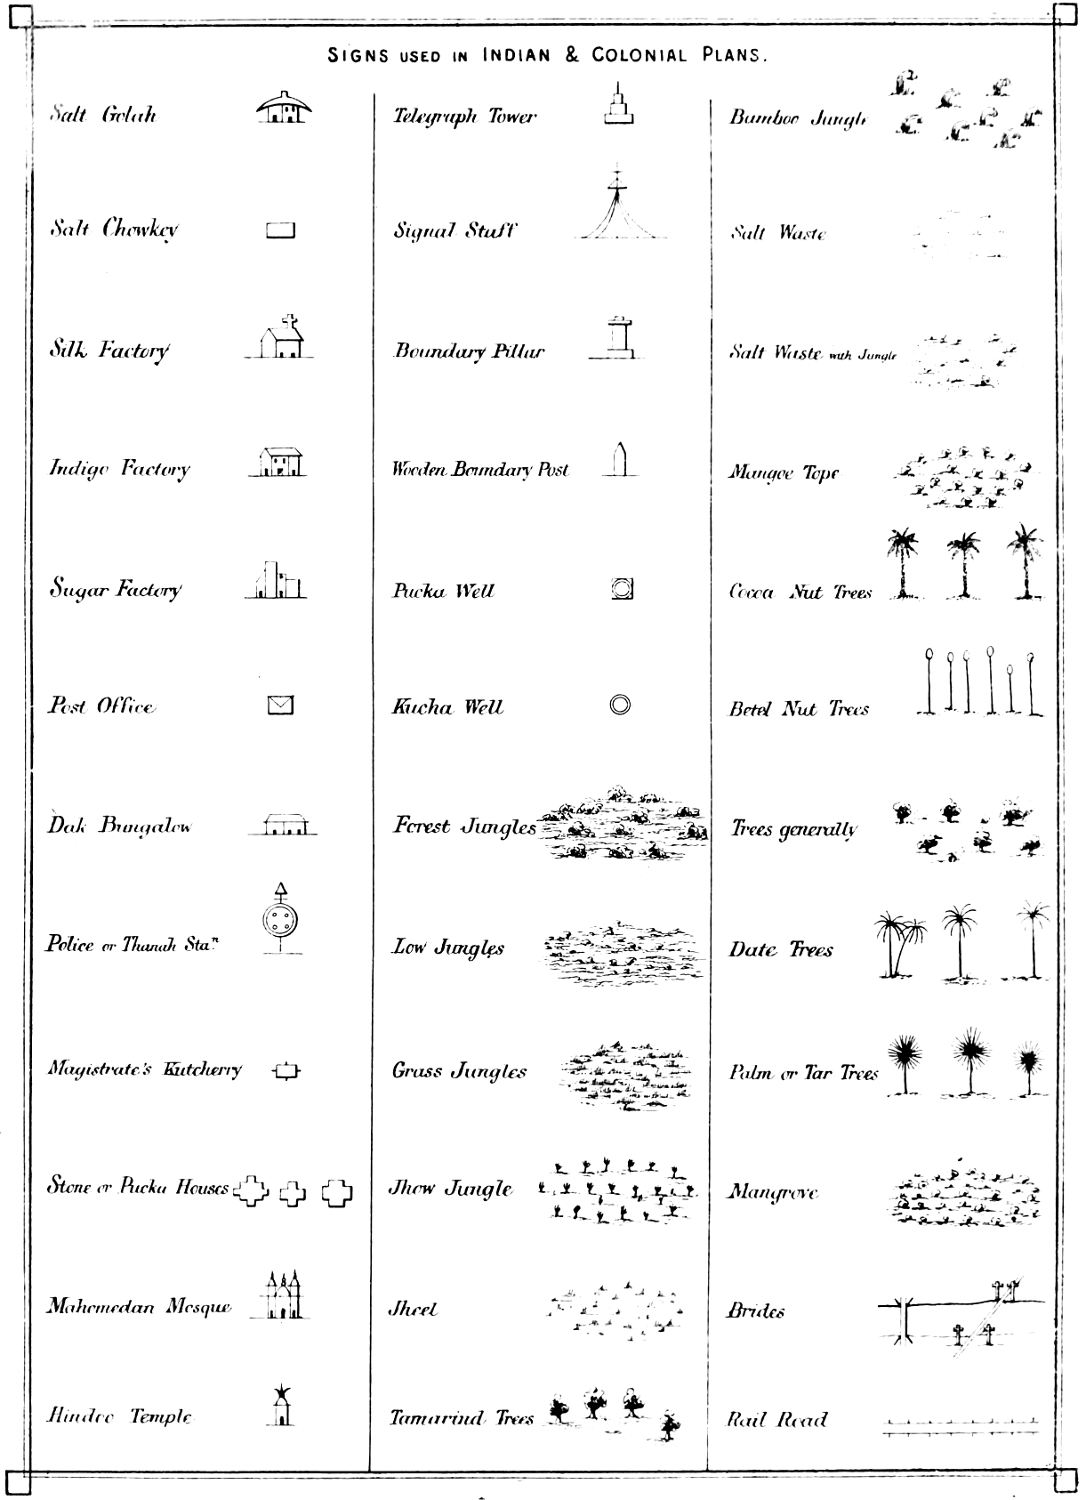 SIGNS USED IN INDIAN & COLONIAL PLANS.
Salt Golah
Salt Chowkey
Silk Factory
Indigo Factory
Sugar Factory
Post Office
Dak Bungalow
Police or Thanah Sta.n
Magistrate's Kutcherry
Stone or Pucka Houses
Mahomedan Mosque
Hindoo Temple
Telegraph Tower
Signal Staff
Boundary Pillar
Wooden Boundary Post
Pucka Well
Kucha Well
Forest Jungles
Low Jungles
Grass Jungles
Jhow Jungle
Jheel
Tamarind Trees
Bamboo Jungle
Salt Waste
Salt Waste with Jungle
Mangoe Tope
Cocoa Nut Trees
Betel Nut Trees
Trees generally
Date Trees
Palm or Tar Trees
Mangrove
Brides
Rail Road